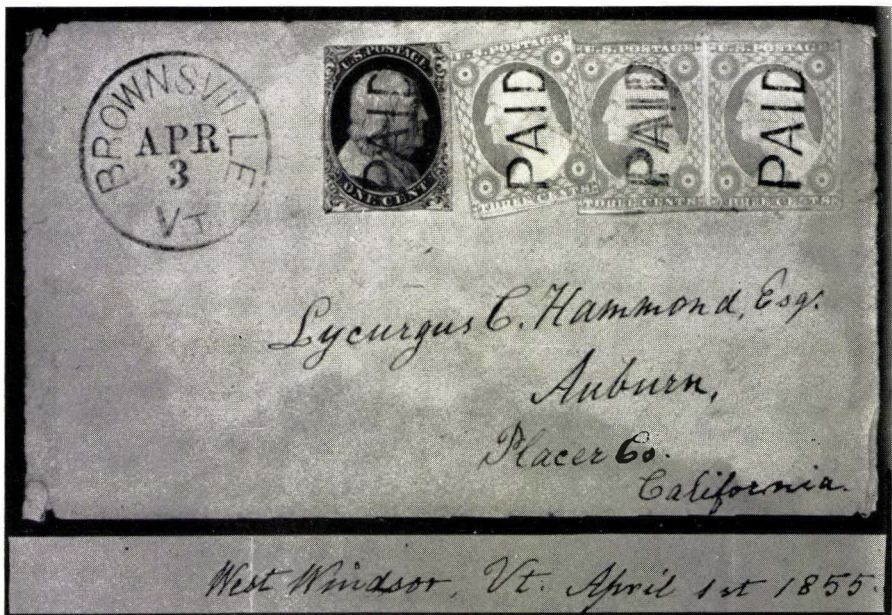 BROWNSVILLE
APR
3
VT
U.S. POSTAGE
PAID
ONE CENT
U.S. POSTAGE
PAID
THREE CENTS
U.S. POSTAGE
PAID
THREE CENTS
U.S. POSTAGE
PAID
THREE CENTS
Lycurgus C. Hammond, Esq.
Auburn,
Placer Co.
California.
West Windsor, Vt. April 1st 1855.